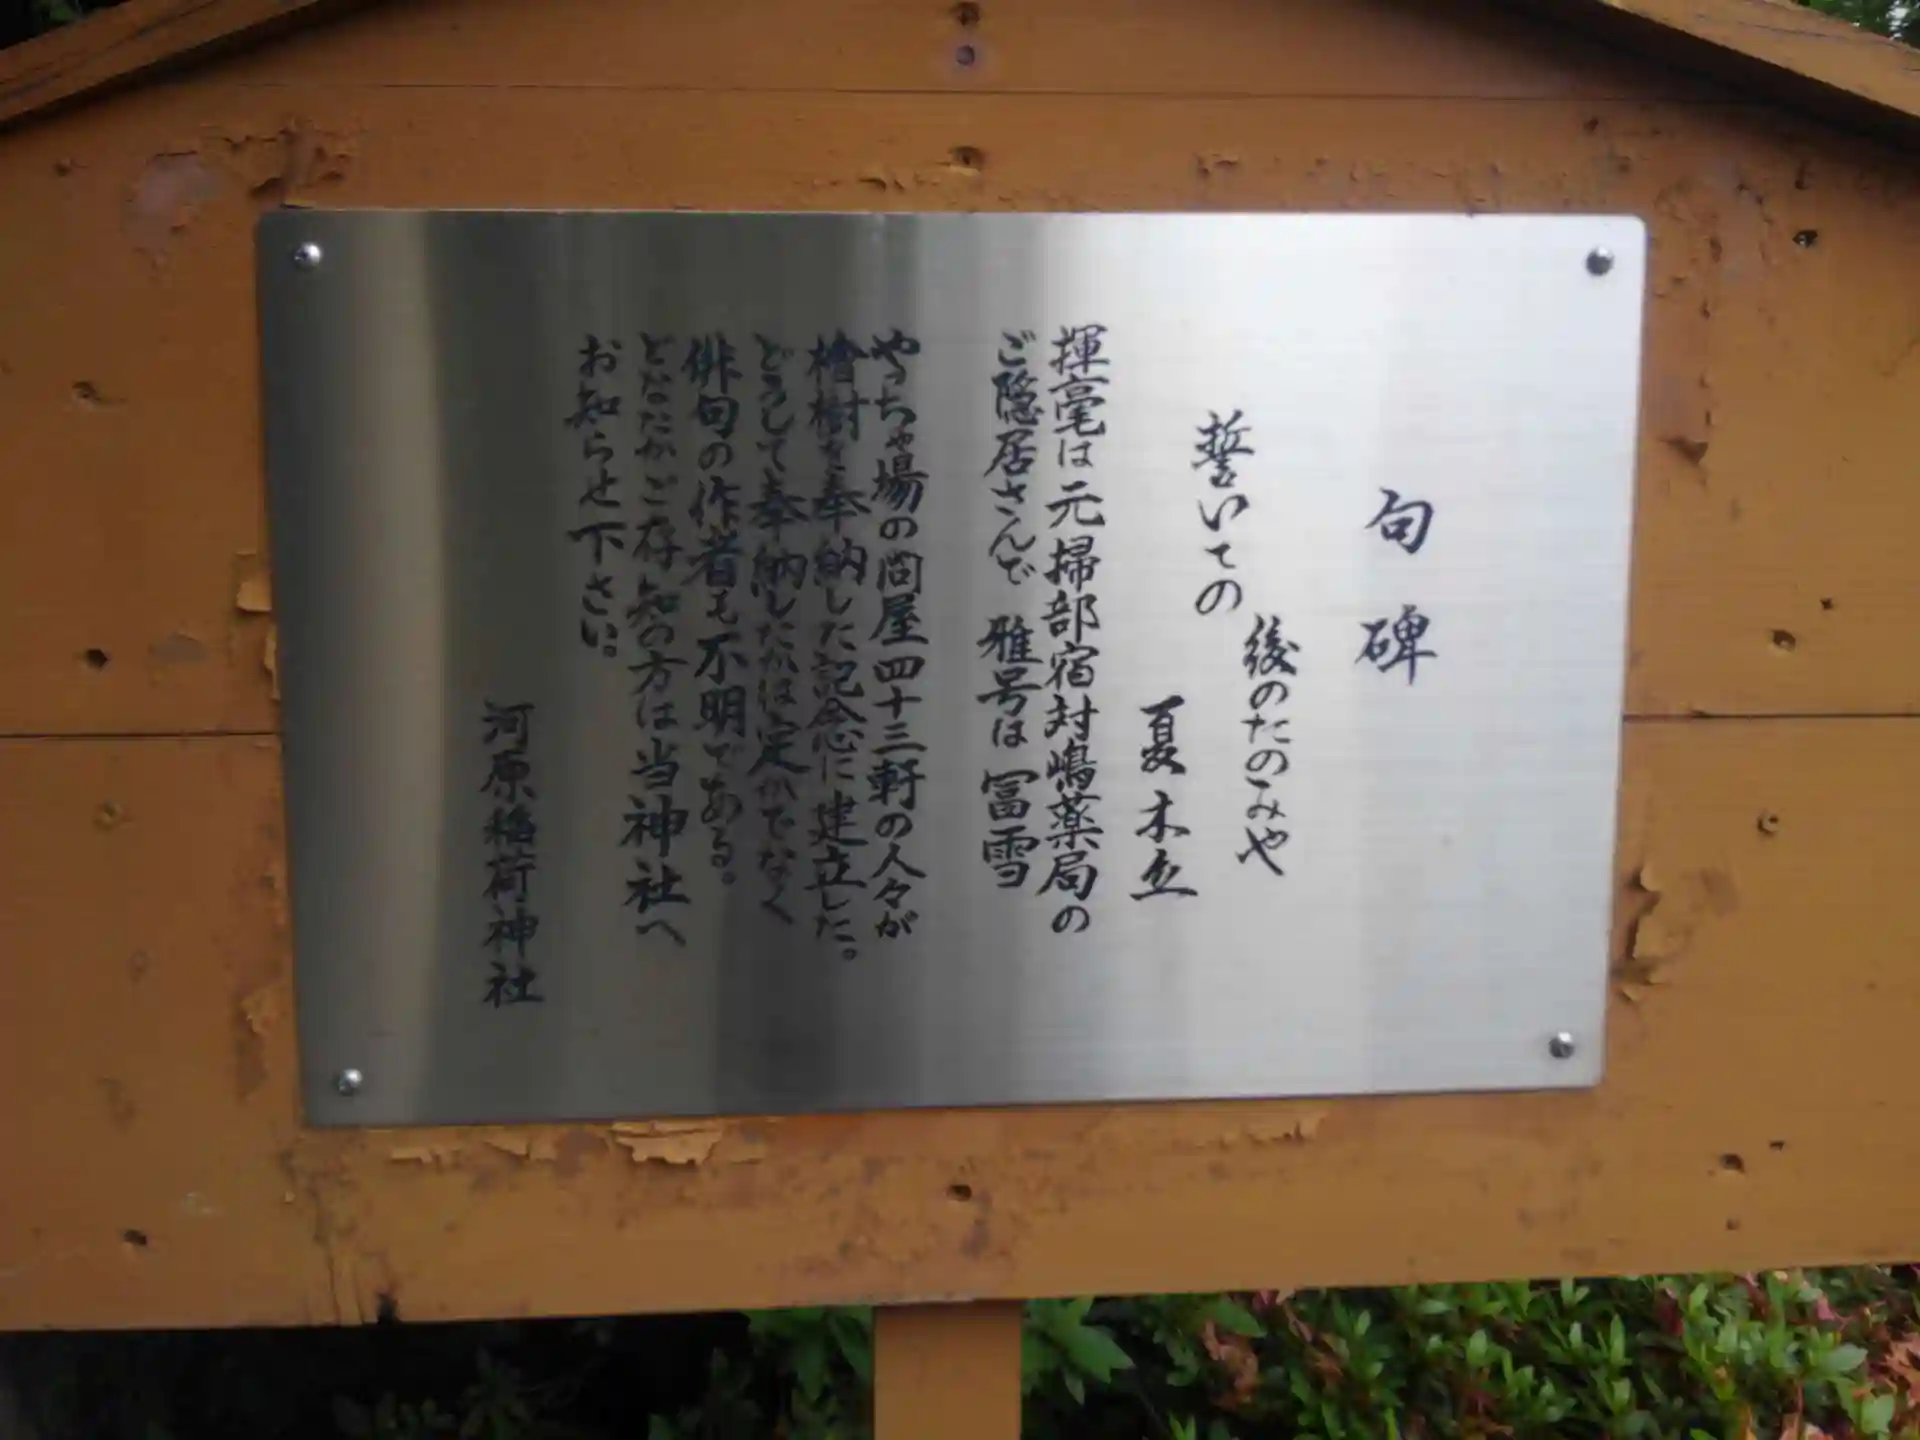 句碑
誓いての
後のたのみや
夏木立
揮毫は元掃部宿対嶋薬局の
ご隠居さんで 雅号は冨雪
やっちゃ場の問屋四十三軒の人々が
檜樹を奉納した記念に建立した。
どうして奉納したかは定かでなく
俳句の作者も不明である。
どなたかご存知の方は当神社へ
お知らせ下さい。
河原稲荷神社